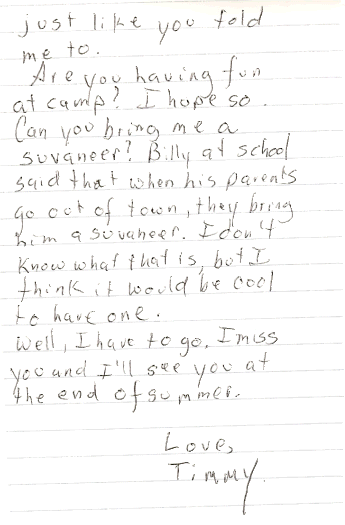 just like you told
me to.
Are you having fun
at camp? I hope so.
Can you bring me a
suvaneer? Billy at school
said that when his parents
go out of town, they bring
him a suvaneer. I don't
know what that is, but I
think it would be cool
to have one.
Well, I have to go. I miss
you and I'll see you at
the end of summer.
Love,
Timmy.